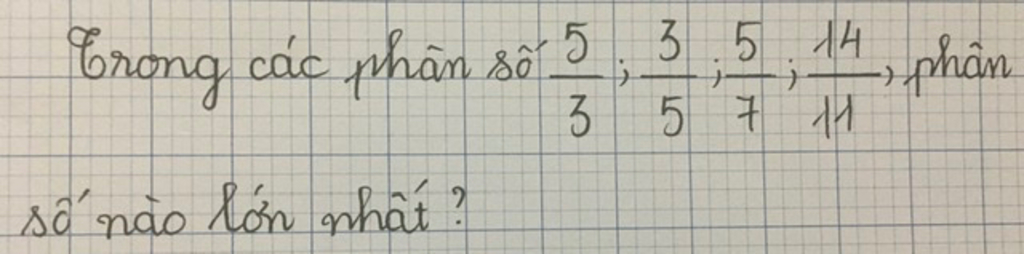 Trong các phân số 5/3 ; 3/5 ; 5/7 ; 14/11, phân
số nào lớn nhất?